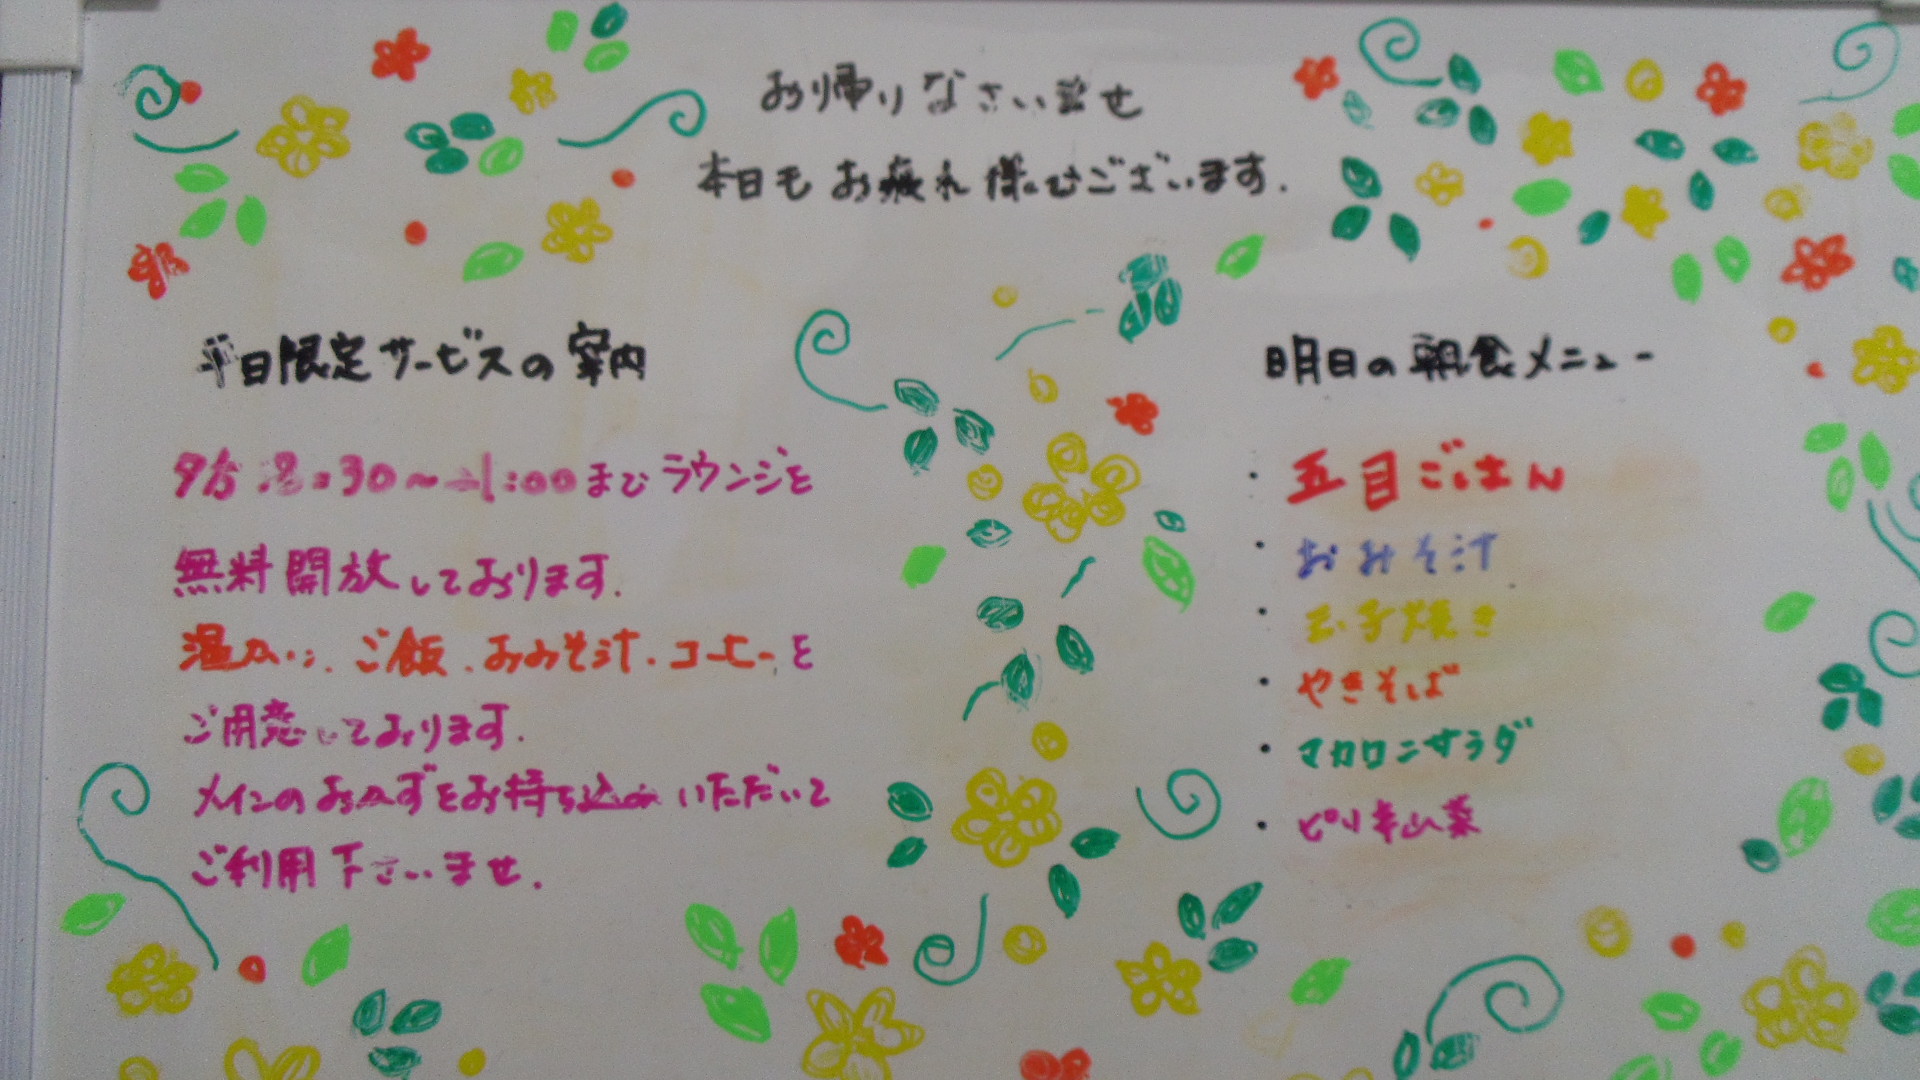 お帰りなさいませ
本日もお疲れ様でございます.
平日限定サービスの案内
夕方 :30～ 1:00までラウンジを
無料開放しております.
温かい、ご飯、おみそ汁、コーヒーを
ご用意しております.
メインのおかずをお持ち込みいただいて
ご利用下さいませ.
明日の朝食メニュー
・五目ごはん
・おみそ汁
・玉子焼き
・やきそば
・マカロニサラダ
・ピリ辛山菜